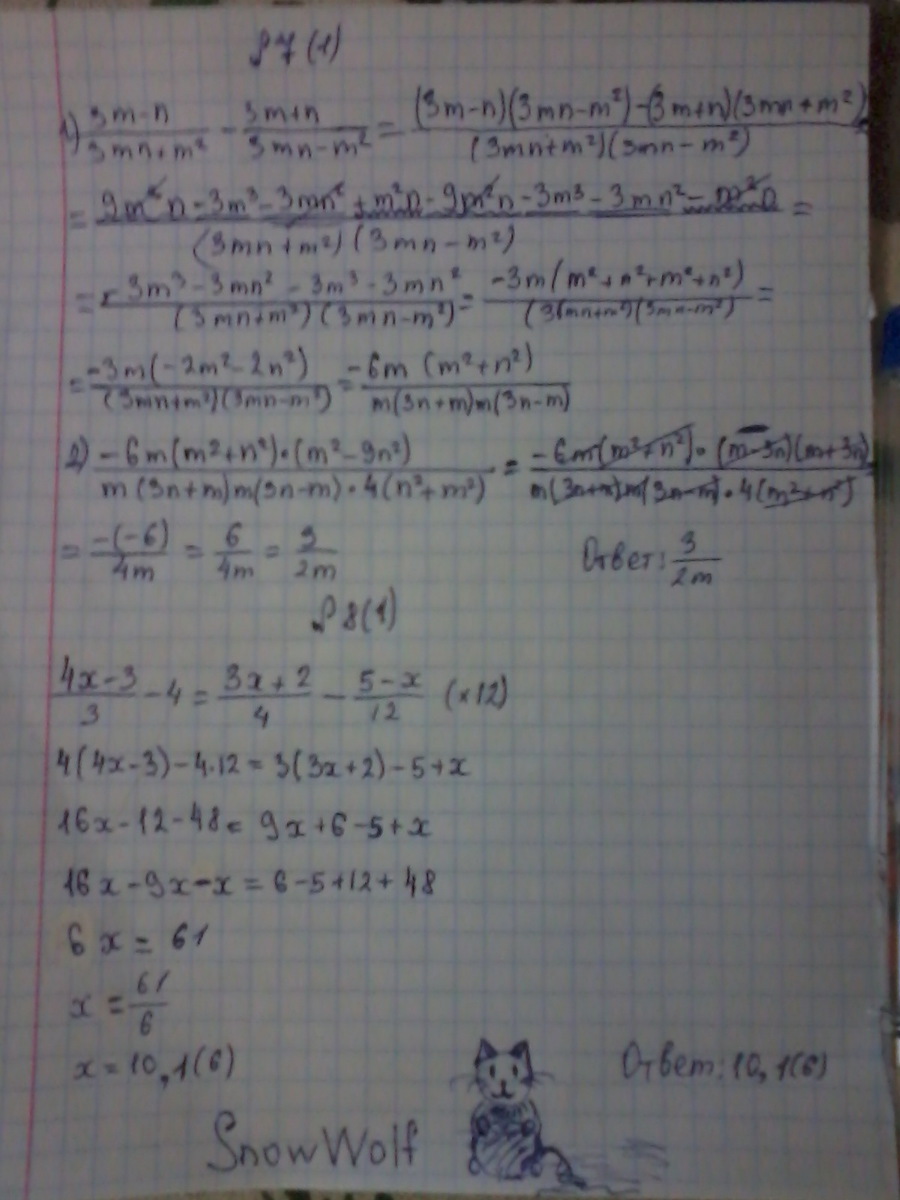 №7(1)
1) (3m-n)/(3mn+m²) - (3m+n)/(3mn-m²) = ((3m-n)(3mn-m²)-(3m+n)(3mn+m²))/((3mn+m²)(3mn-m²)) =
= (9m²n-3m³-3mn²+m²n-9m²n-3m³-3mn²-m²n)/((3mn+m²)(3mn-m²)) =
= (-3m³-3mn²-3m³-3mn²)/((3mn+m²)(3mn-m²)) = (-3m(m²+n²+m²+n²))/((3mn+m²)(3mn-m²)) =
= (-3m(-2m²-2n²))/((3mn+m²)(3mn-m²)) = (-6m(m²+n²))/(m(3n+m)m(3n-m))
2) (-6m(m²+n²)·(m²-9n²))/(m(3n+m)m(3n-m)·4(n²+m²)) = (-6m(m²+n²)·(m-3n)(m+3n))/(m(3n+m)m(3n-m)·4(m²+n²))
= -(-6)/4m = 6/4m = 3/2m Ответ: 3/2m
№8(1)
(4x-3)/3 - 4 = (3x+2)/4 - (5-x)/12 (×12)
4(4x-3)-4·12=3(3x+2)-5+x
16x-12-48=9x+6-5+x
16x-9x-x=6-5+12+48
6x=61
x=61/6
x=10,1(6) Ответ: 10,1(6)
SnowWolf